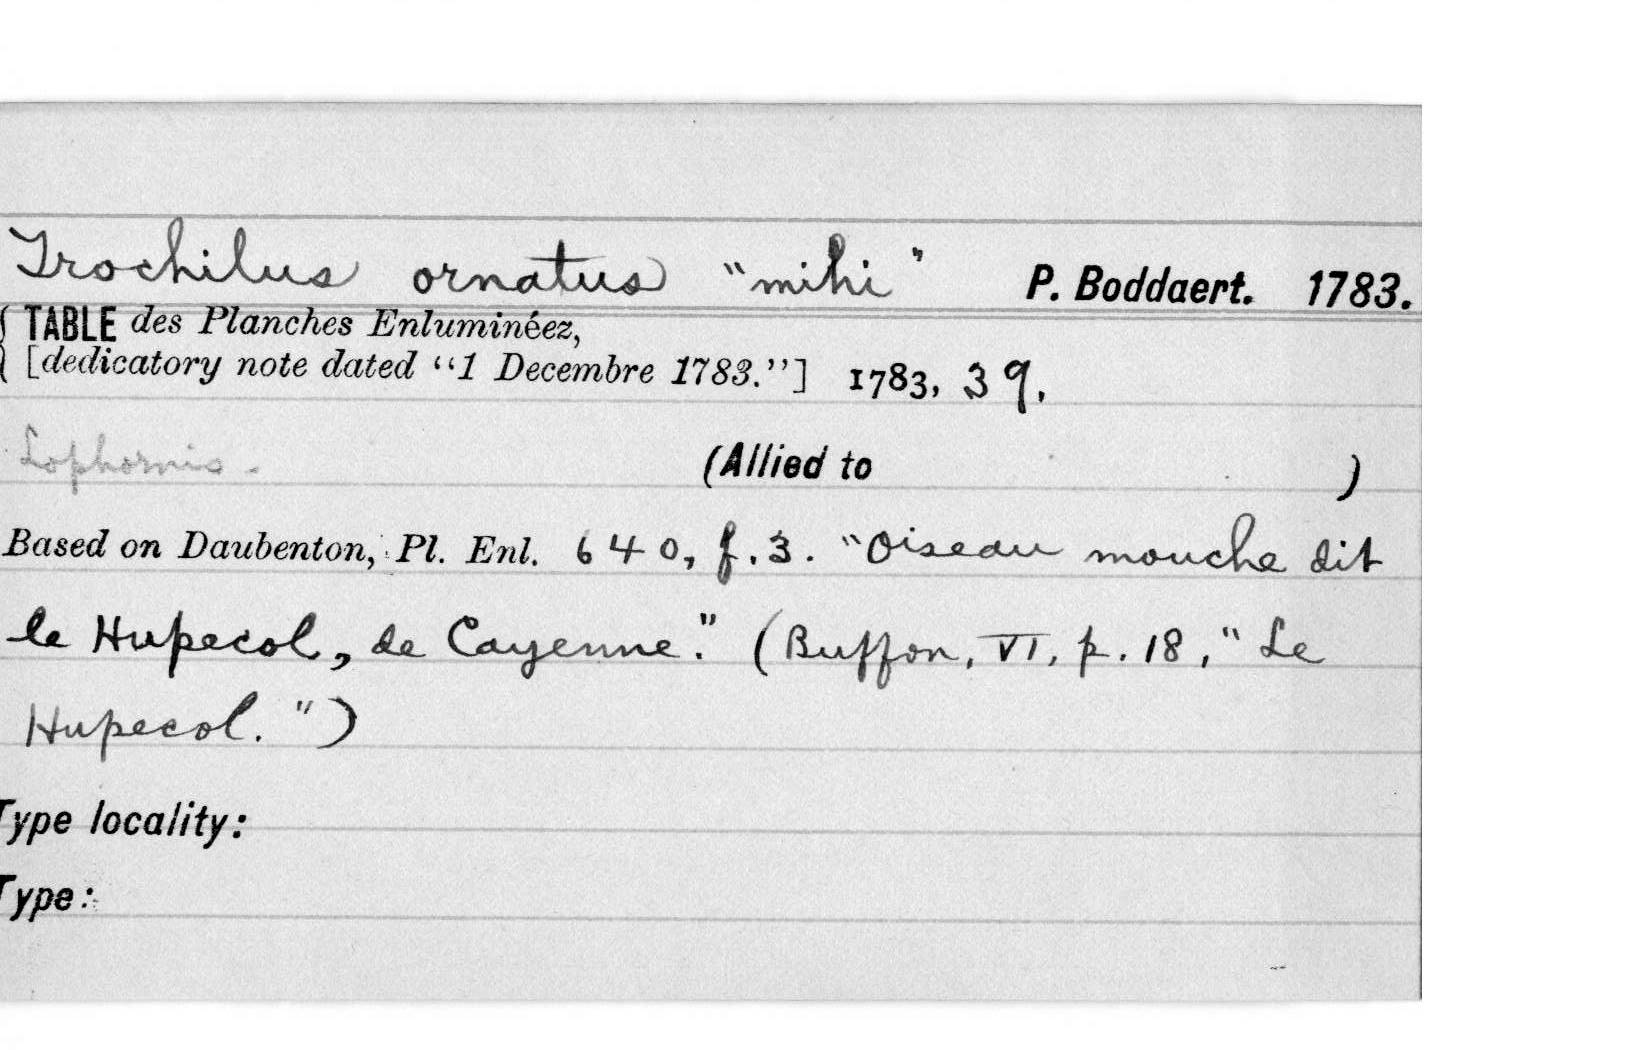 Trochilus ornatus "mihi" P. Boddaert. 1783.
TABLE des Planches Enluminéez,
[dedicatory note dated "1 Decembre 1783."] 1783, 39.
Lophornis. (Allied to )
Based on Daubenton, Pl. Enl. 640, f.3. "Oiseau mouche dit
le Hupecol, de Cayenne." (Buffon, VI, p. 18, "Le
Hupecol.")
Type locality:
Type: